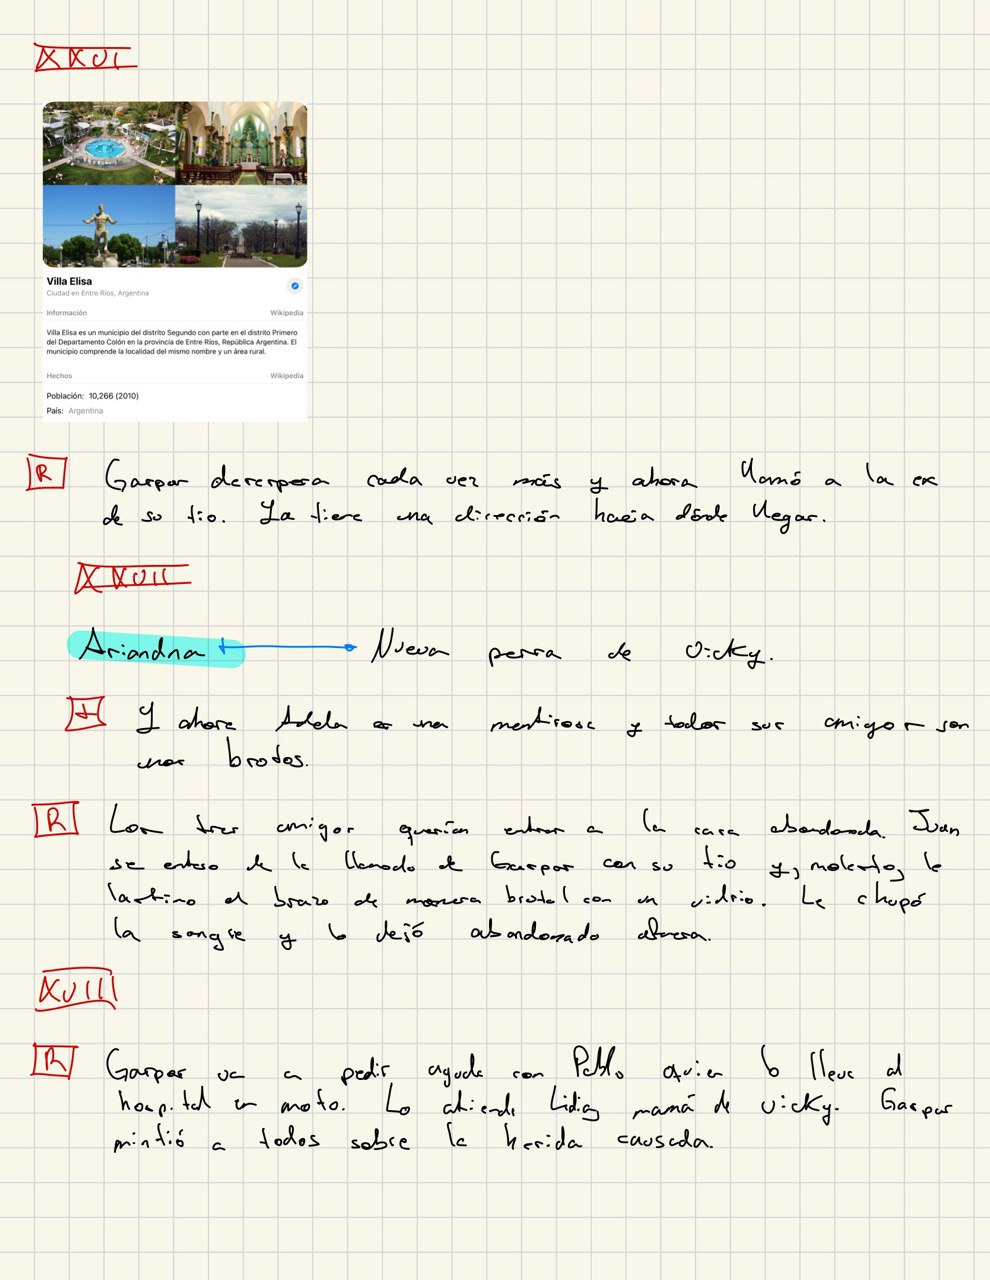 XXVI
Villa Elisa
Ciudad en Entre Ríos, Argentina
Información Wikipedia
Villa Elisa es un municipio del distrito Segundo con parte en el distrito Primero
del Departamento Colón en la provincia de Entre Ríos, República Argentina. El
municipio comprende la localidad del mismo nombre y un área rural.
Hechos Wikipedia
Población: 10,266 (2010)
País: Argentina
R Gaspar deserpera cada vez más y ahora llamó a la ex
de su tio. Ya tiene una dirección hacia dónde llegar.
XXVII
Ariandna Nueva perra de Vicky.
Y ahora Adela es una mentirosa y todos sus amigos son
unos brodos.
R Los tres amigos querían entrar a la casa abandonada. Juan
se entero de la llamada de Gaspar con su tio y, molesto, le
lastimo el brazo de manera brutal con un vidrio. Le chupó
la sangre y lo dejó abandonado afuera.
XVIII
R Gaspar va a pedir ayuda con Pablo quien lo lleva al
hospital en moto. Lo atiende Lidia mamá de Vicky. Gaspar
mintió a todos sobre la herida causada.